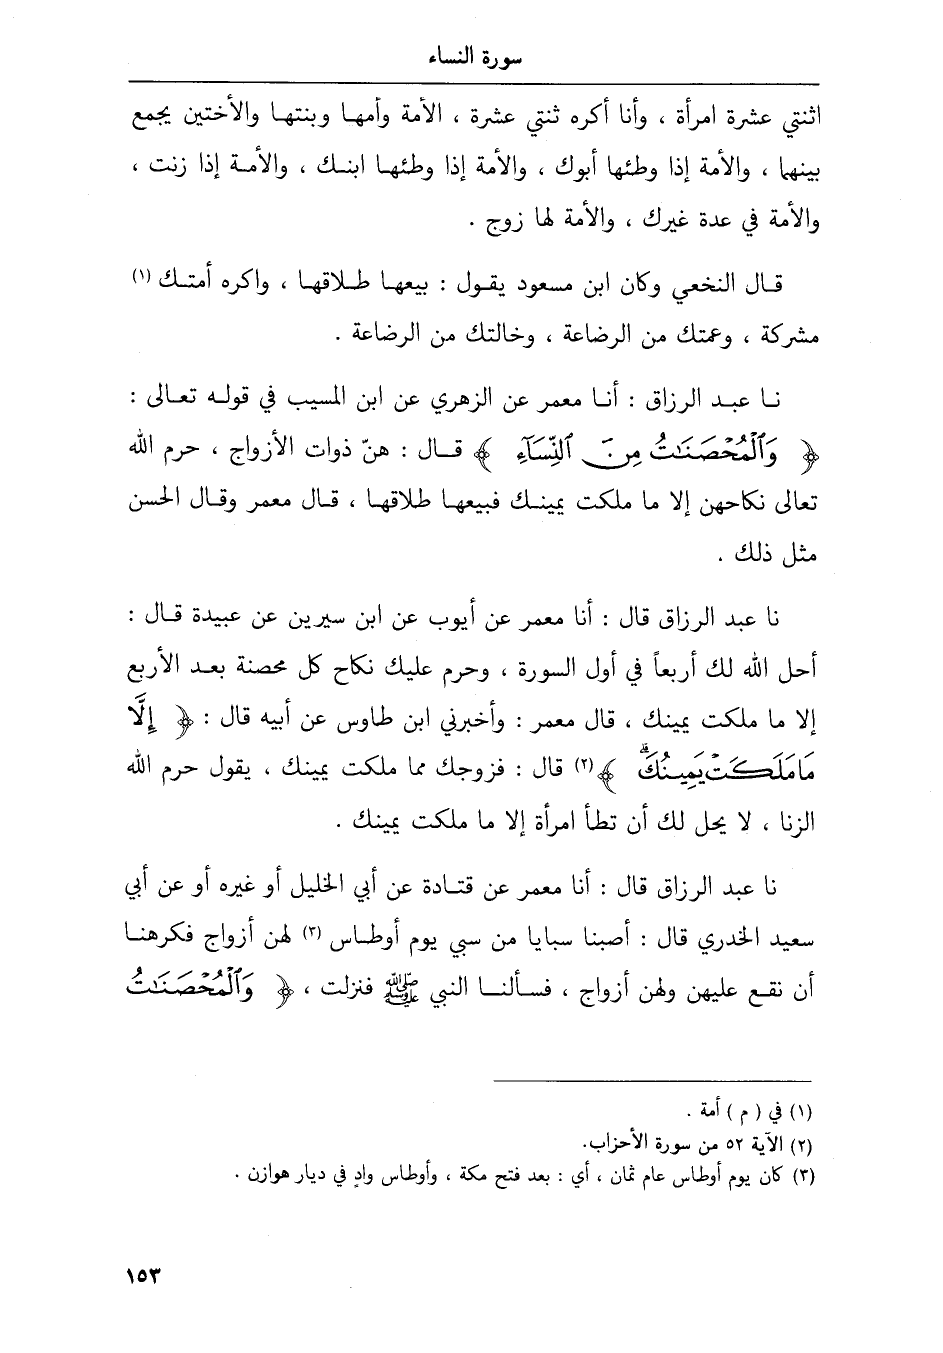 سورة النساء
اثنتي عشرة امرأة ، وأنا أكره ثنتي عشرة ، الأمة وأمها وبنتها والأختين يجمع
بينها ، والأمة إذا وطئها أبوك ، والأمة إذا وطئها ابنك ، والأمة إذا زنت ،
والأمة في عدة غيرك ، والأمة لها زوج .
قال النخعي وكان ابن مسعود يقول : بيعها طلاقها ، واكره أمتك (١)
مشركة ، وعمتك من الرضاعة ، وخالتك من الرضاعة .
نا عبد الرزاق : أنا معمر عن الزهري عن ابن المسيب في قوله تعالى :
﴿ وَٱلْمُحْصَنَٰتُ مِنَ ٱلنِّسَآءِ ﴾ قال : هنّ ذوات الأزواج ، حرم الله
تعالى نكاحهن إلا ما ملكت يمينك فبيعها طلاقها ، قال معمر وقال الحسن
مثل ذلك .
نا عبد الرزاق قال : أنا معمر عن أيوب عن ابن سيرين عن عبيدة قال :
أحل الله لك أربعاً في أول السورة ، وحرم عليك نكاح كل محصنة بعد الأربع
إلا ما ملكت يمينك ، قال معمر : وأخبرني ابن طاوس عن أبيه قال : ﴿ إِلَّا
مَا مَلَكَتْ يَمِينُكَ ۗ ﴾ (٢) قال : فزوجك مما ملكت يمينك ، يقول حرم الله
الزنا ، لا يحل لك أن تطأ امرأة إلا ما ملكت يمينك .
نا عبد الرزاق قال : أنا معمر عن قتادة عن أبي الخليل أو غيره أو عن أبي
سعيد الخدري قال : أصبنا سبايا من سبي يوم أوطاس (٣) لهن أزواج فكرهنا
أن نقع عليهن ولهن أزواج ، فسألنا النبي ﷺ فنزلت ، ﴿ وَٱلْمُحْصَنَٰتُ
(١) في ( م ) أمة .
(٢) الآية ٥٢ من سورة الأحزاب.
(٣) كان يوم أوطاس عام ثمان ، أي : بعد فتح مكة ، وأوطاس وادٍ في ديار هوازن .
١٥٣